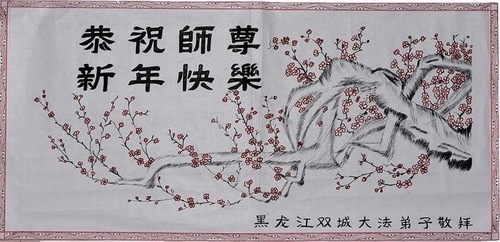 恭祝師尊
新年快樂
黑龙江双城大法弟子敬拜